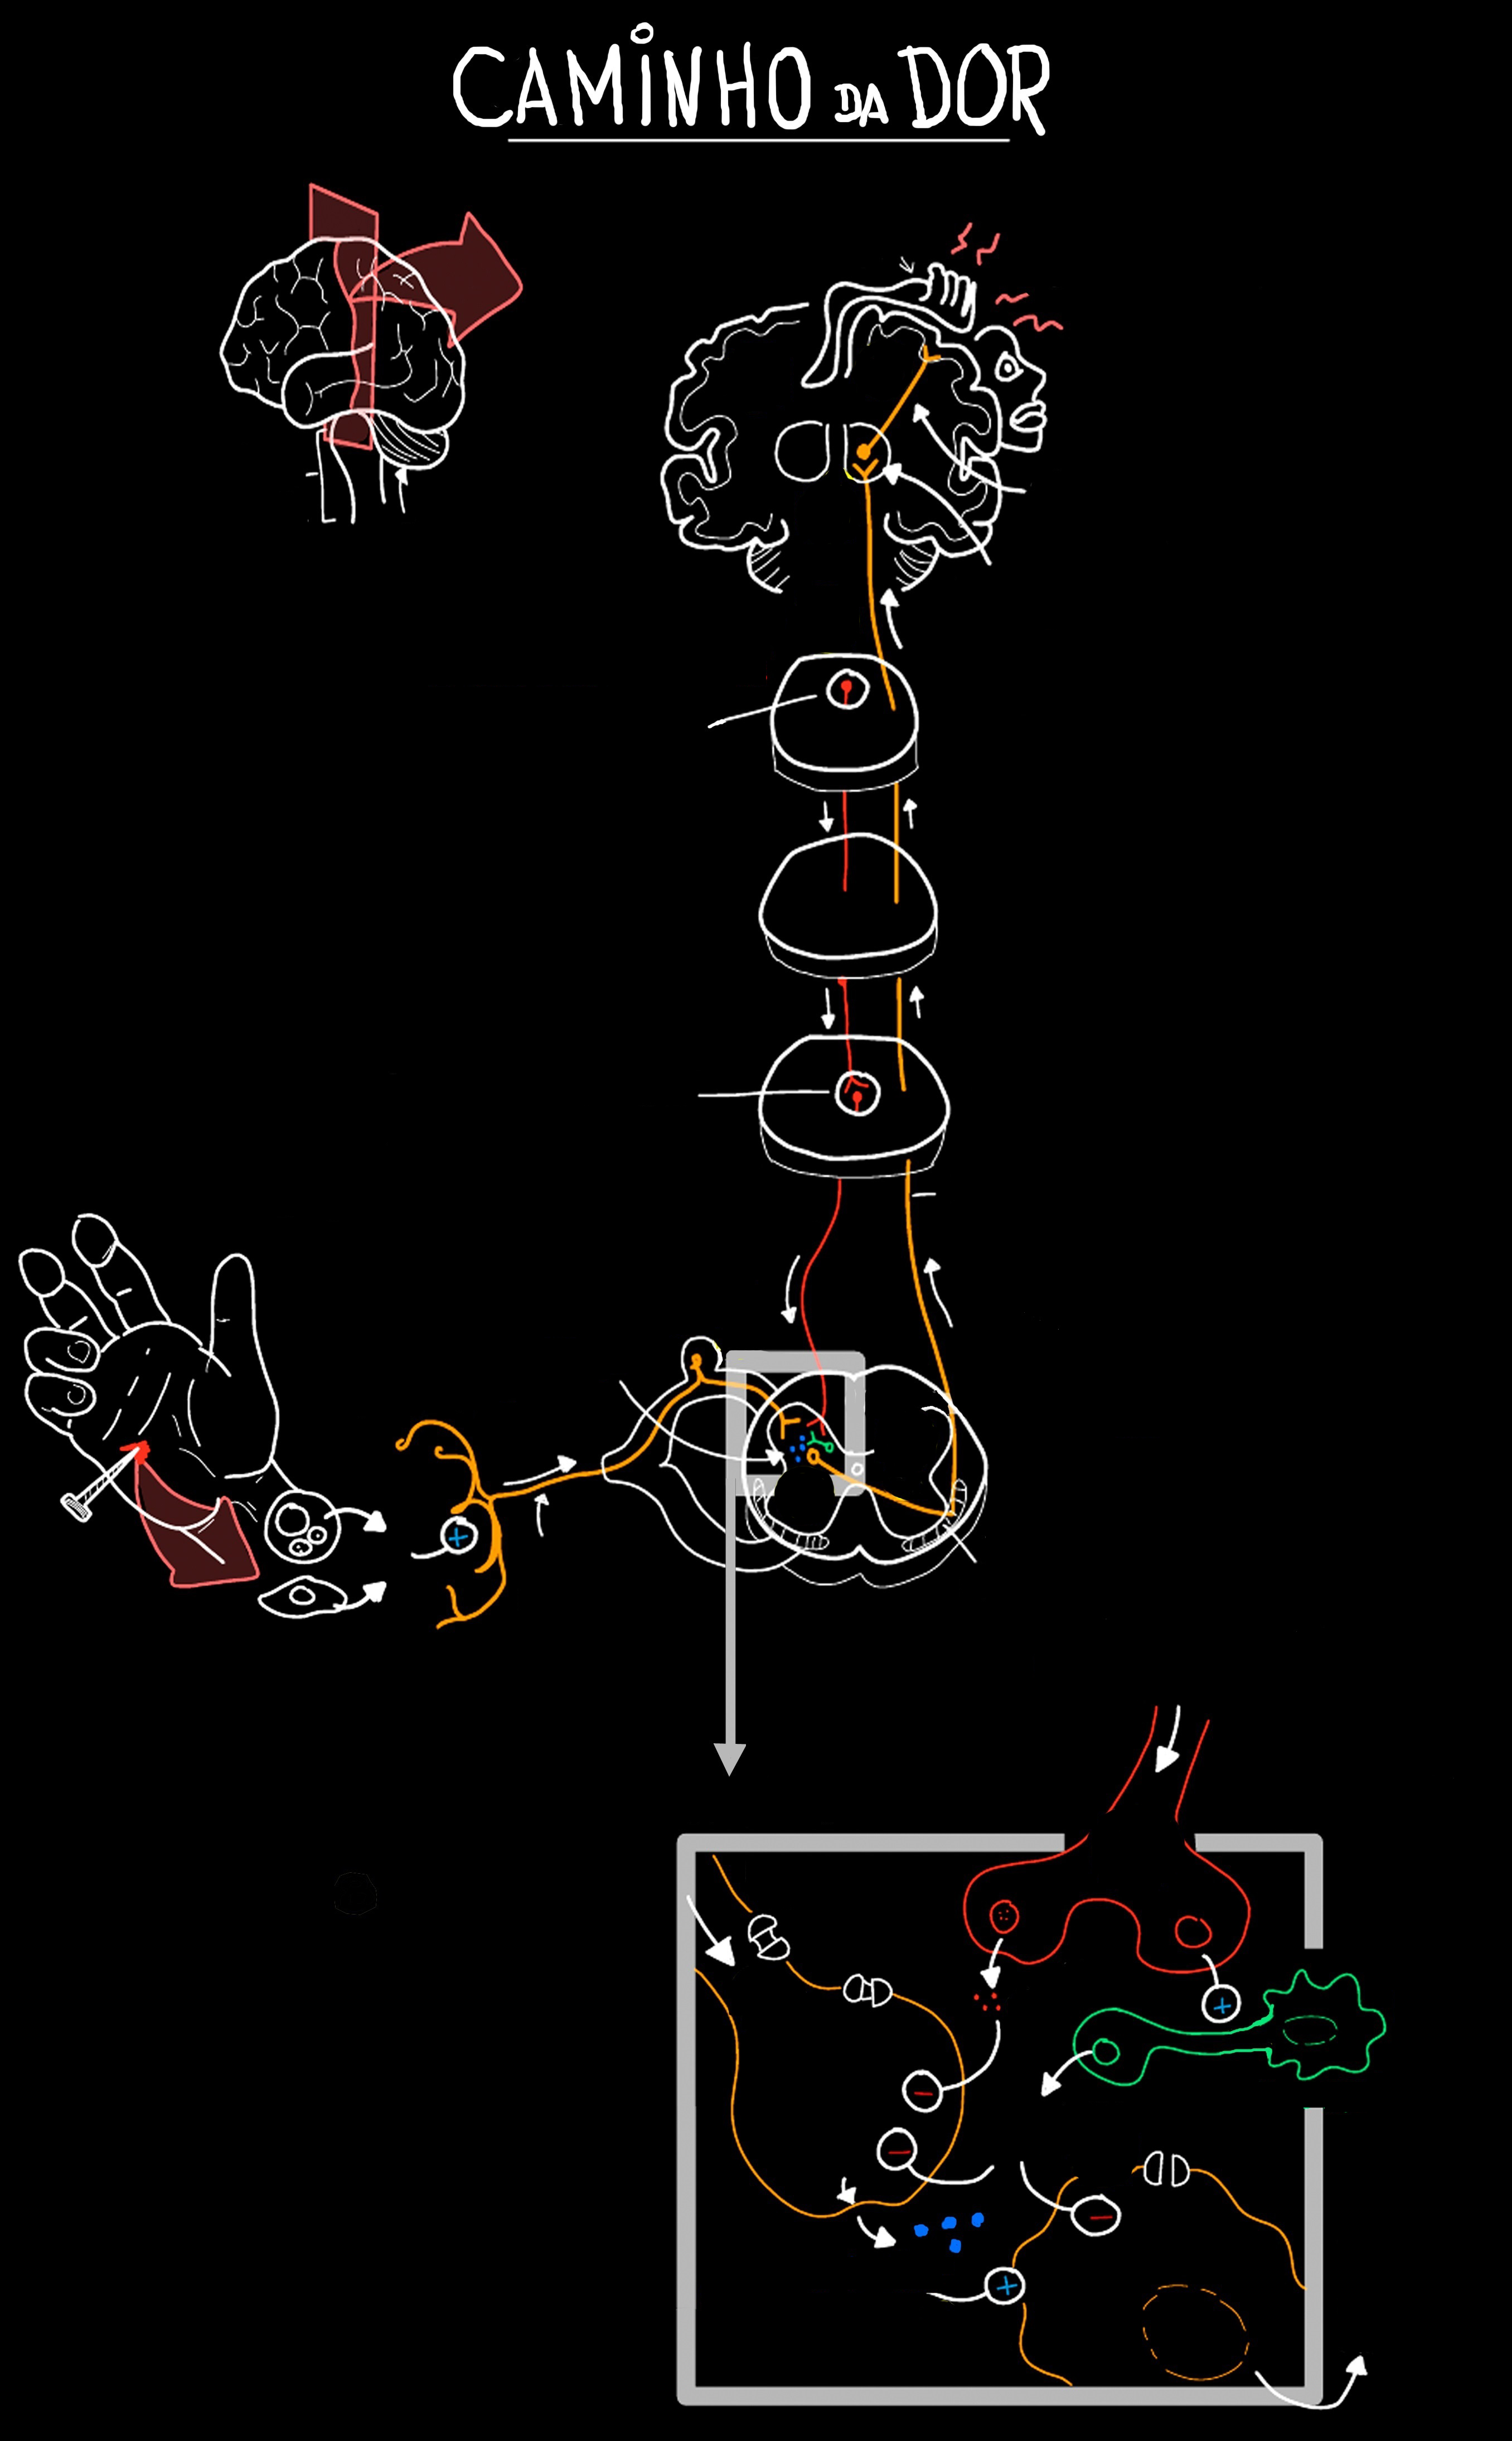 CAMINHO DA DOR
+
+
-
-
-
+